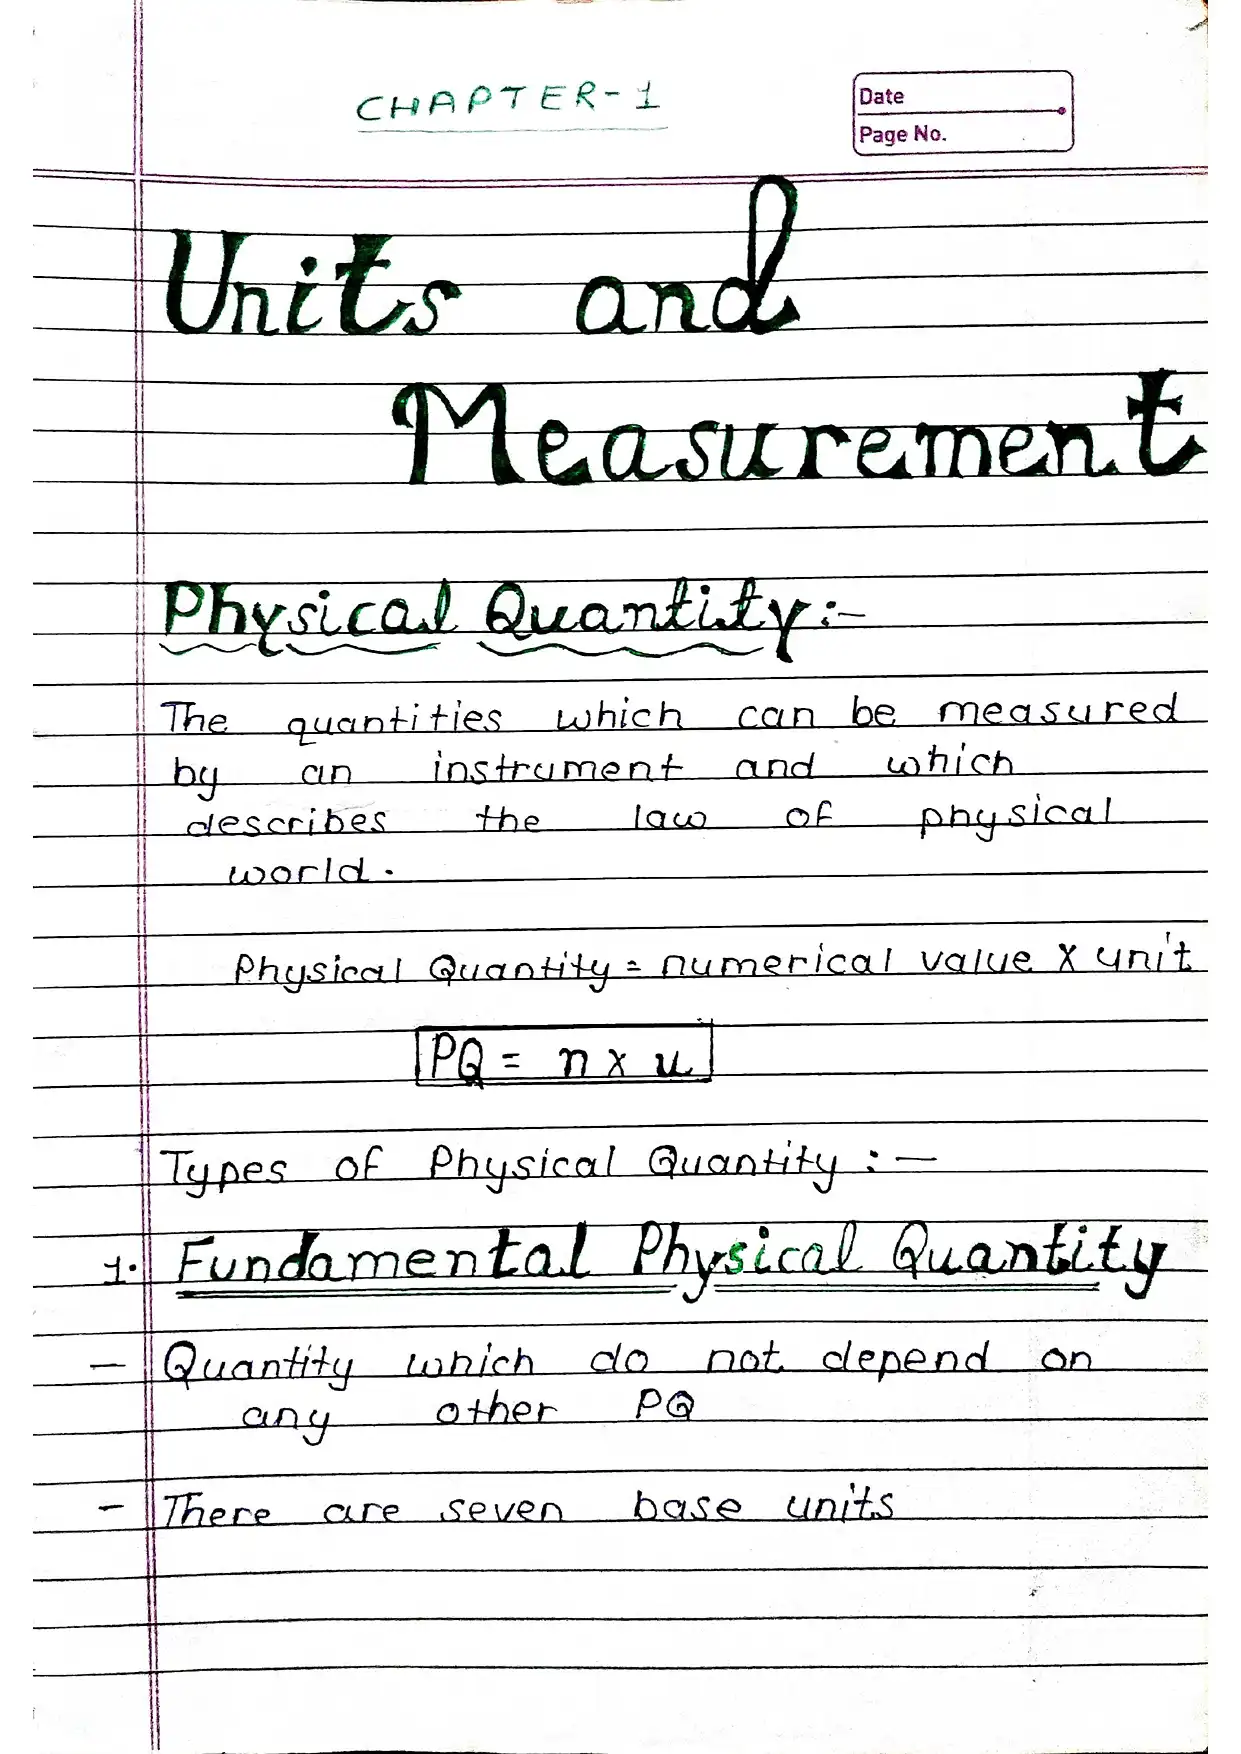 CHAPTER-1
Date
Page No.
Units and
Measurement
Physical Quantity:-
The quantities which can be measured
by an instrument and which
describes the law of physical
world.
Physical Quantity = numerical value X unit
PQ = n x u
Types of Physical Quantity :-
1. Fundamental Physical Quantity
- Quantity which do not depend on
any other PQ
- There are seven base units